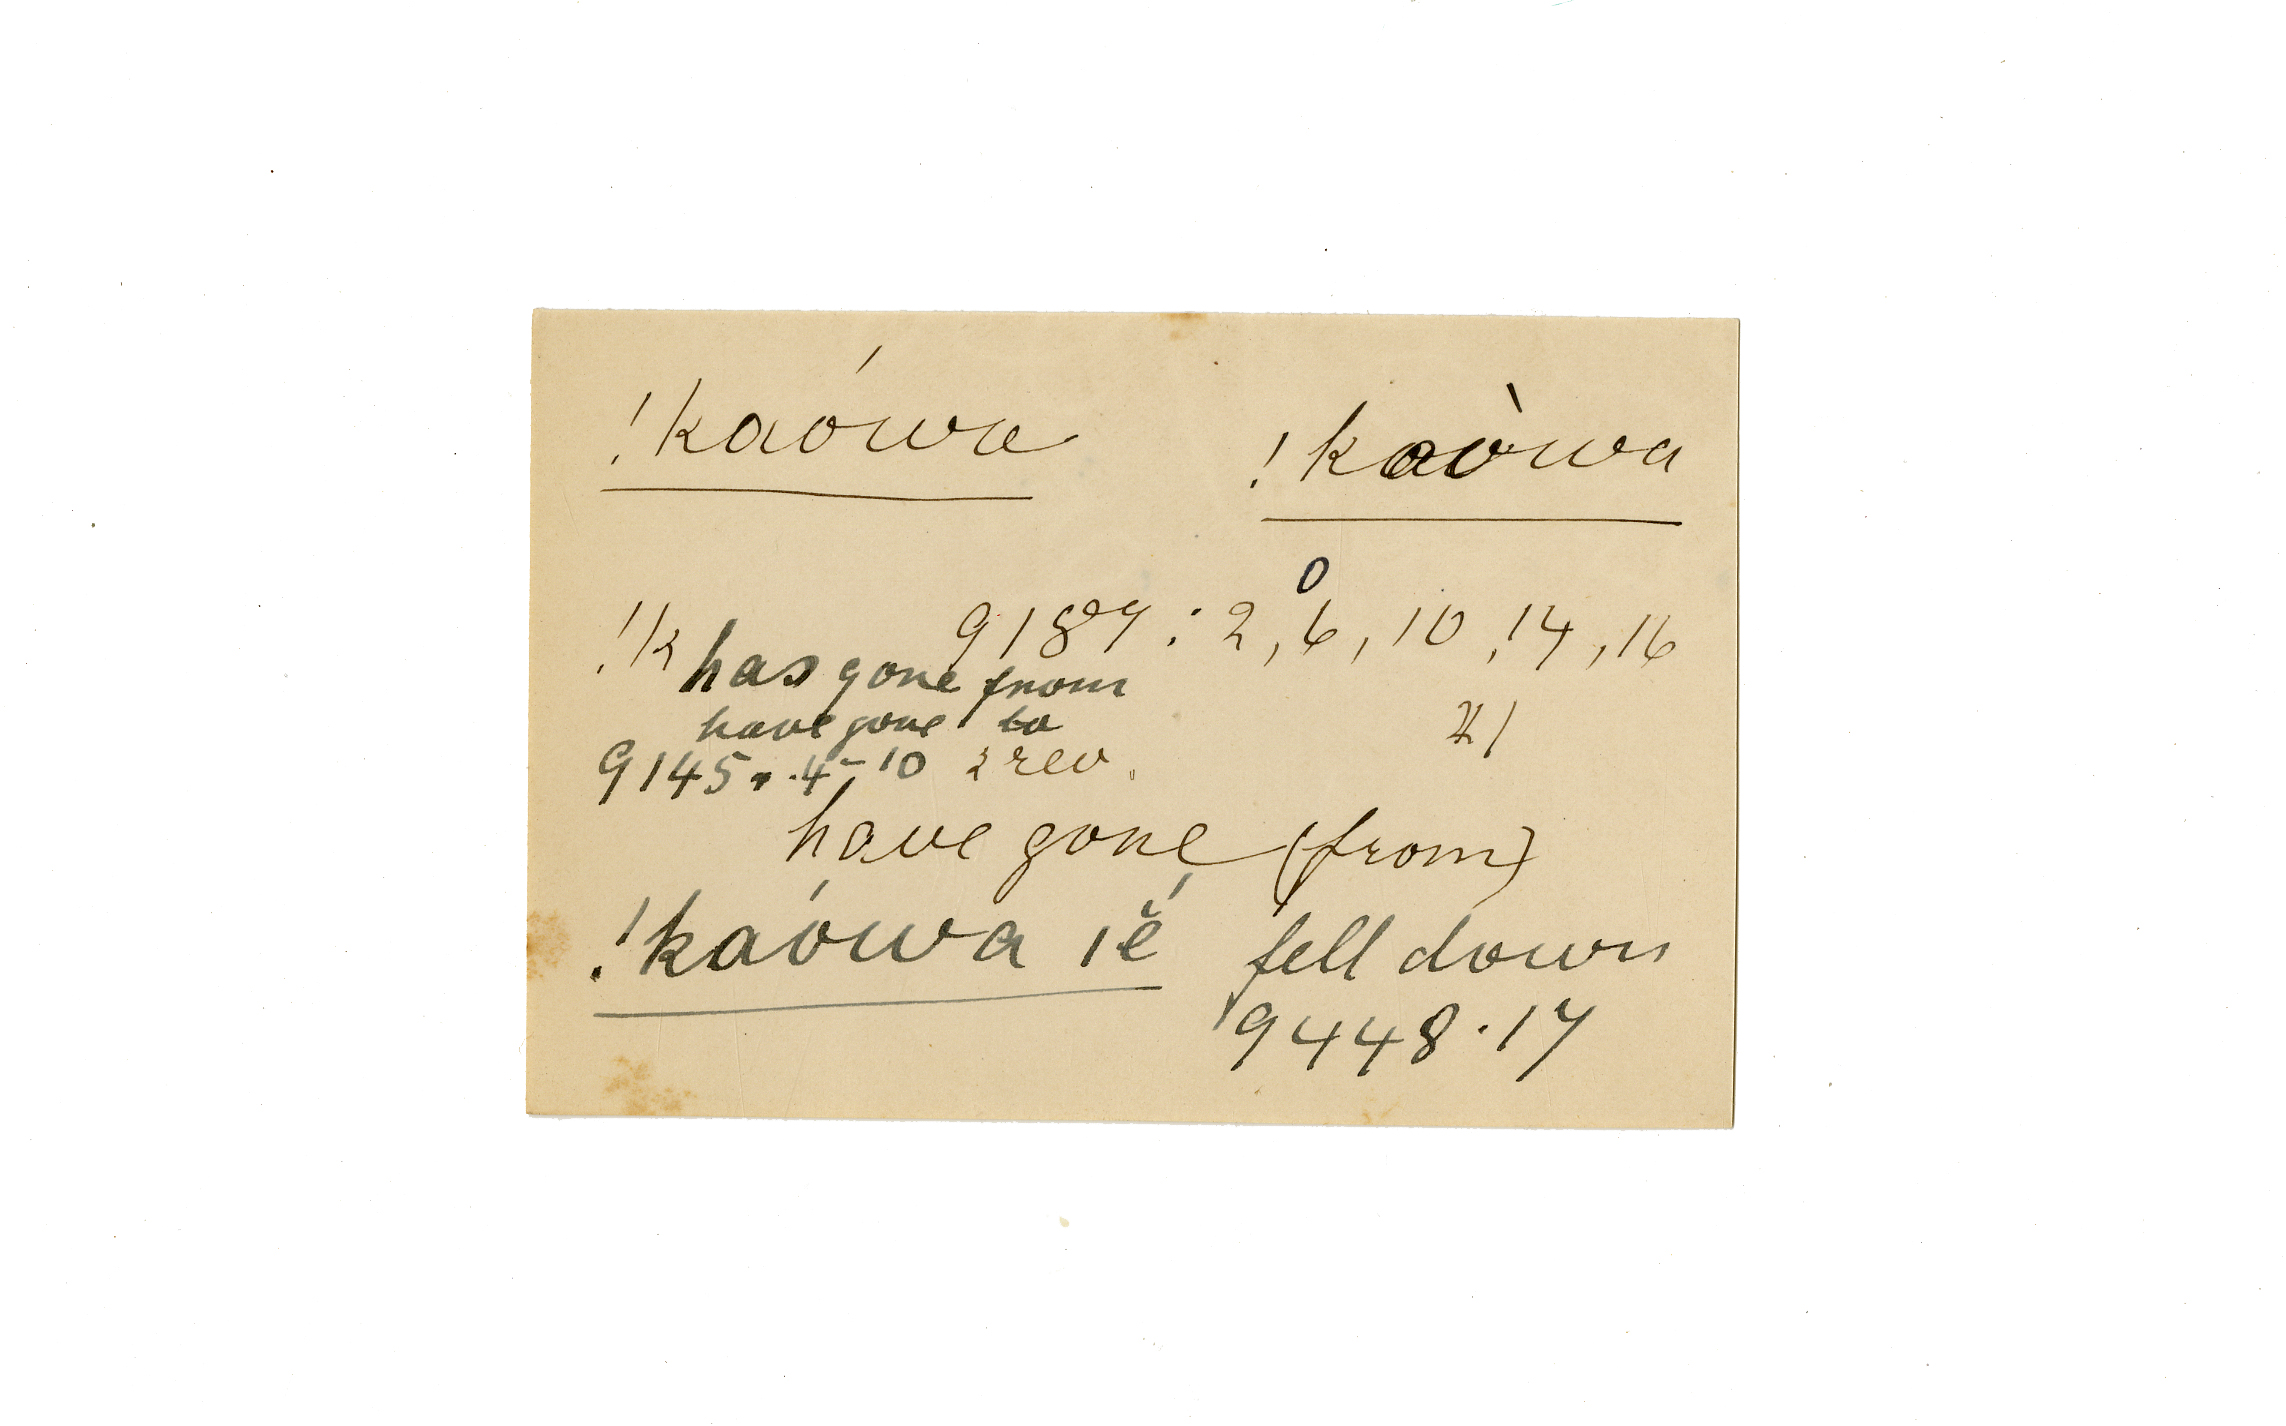 !kaówa !kaòwa
0
!k 9187 : 2, 6, 10, 14, 16
has gone from
have gone to 21
9145 . 4-10 rev.
have gone (from)
!kaówa ıĕ́ fell down
9448 . 17